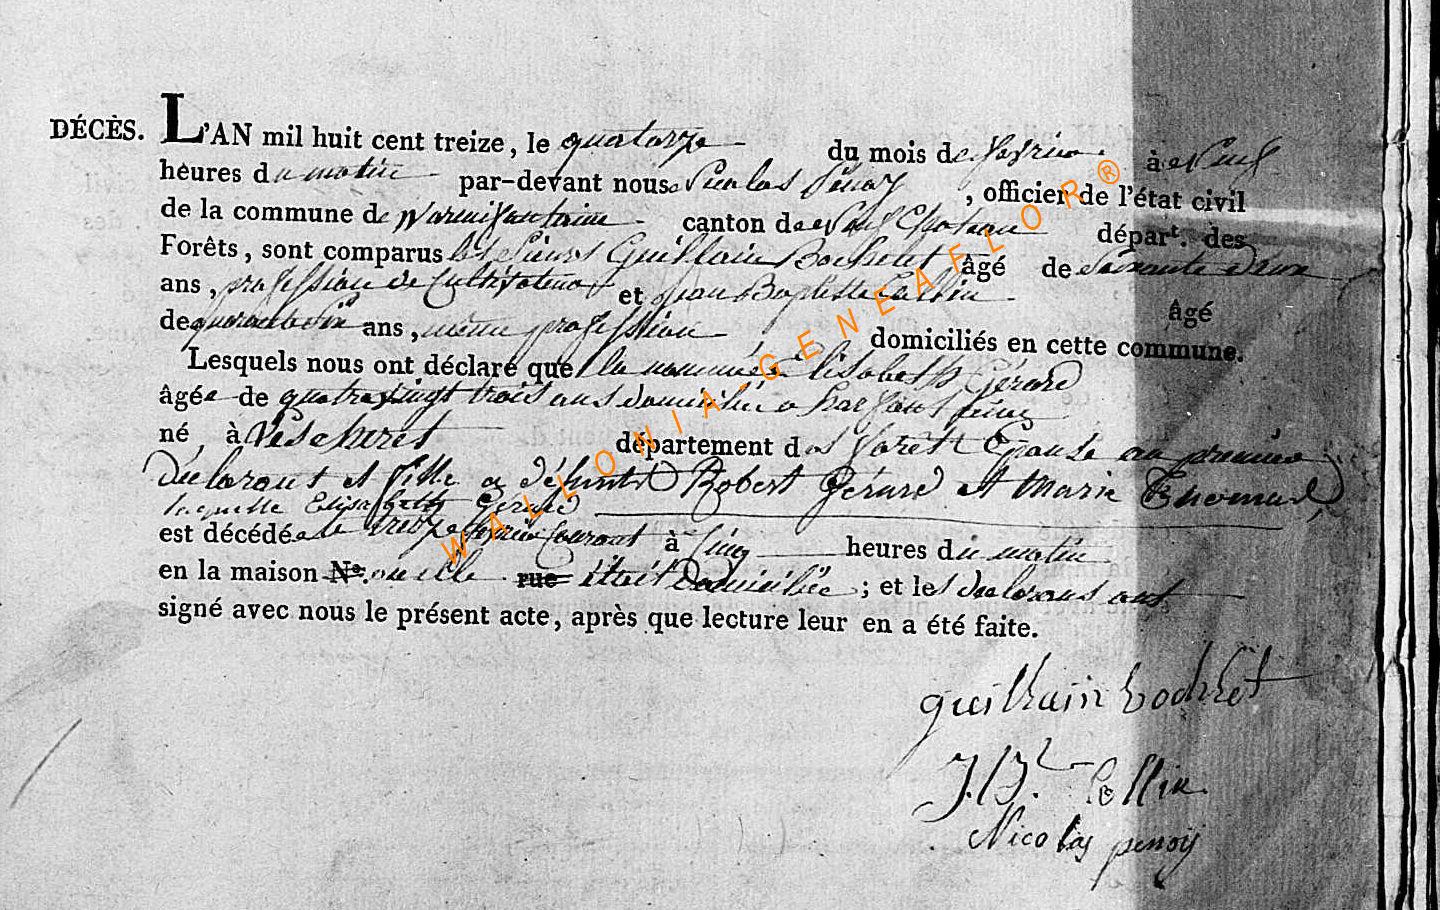 DÉCÈS. L'AN mil huit cent treize, le quatorze du mois de fevrier à neuf
heures du matin par-devant nous Nicolas Penoy, officier de l'état civil
de la commune de Warmifontaine canton de Neufchateau départ. des
Forêts, sont comparus les Sieurs Guillaine Bocholet âgé de soixante deux
ans, profession de Cultivateur et jean Baptiste Collin âgé
de quarante six ans, même profession domiciliés en cette commune.
Lesquels nous ont déclaré que la nommée Elisabeth Gérard
âgée de quatre vingt trois ans domiciliée a
né à département des forêts Epouse au premier
déclarant et fille a défunts Robert Gérard et Marie
laquelle Elisabeth Gérard
est décédée le treize fevrier Courant à Cinq heures du matin
en la maison No. ou elle rue était Domiciliée; et les declarans ont
signé avec nous le présent acte, après que lecture leur en a été faite.
guillain bochlet
J.B. Collin
Nicolas penoy
WALLONIA.GENEAFLOR®